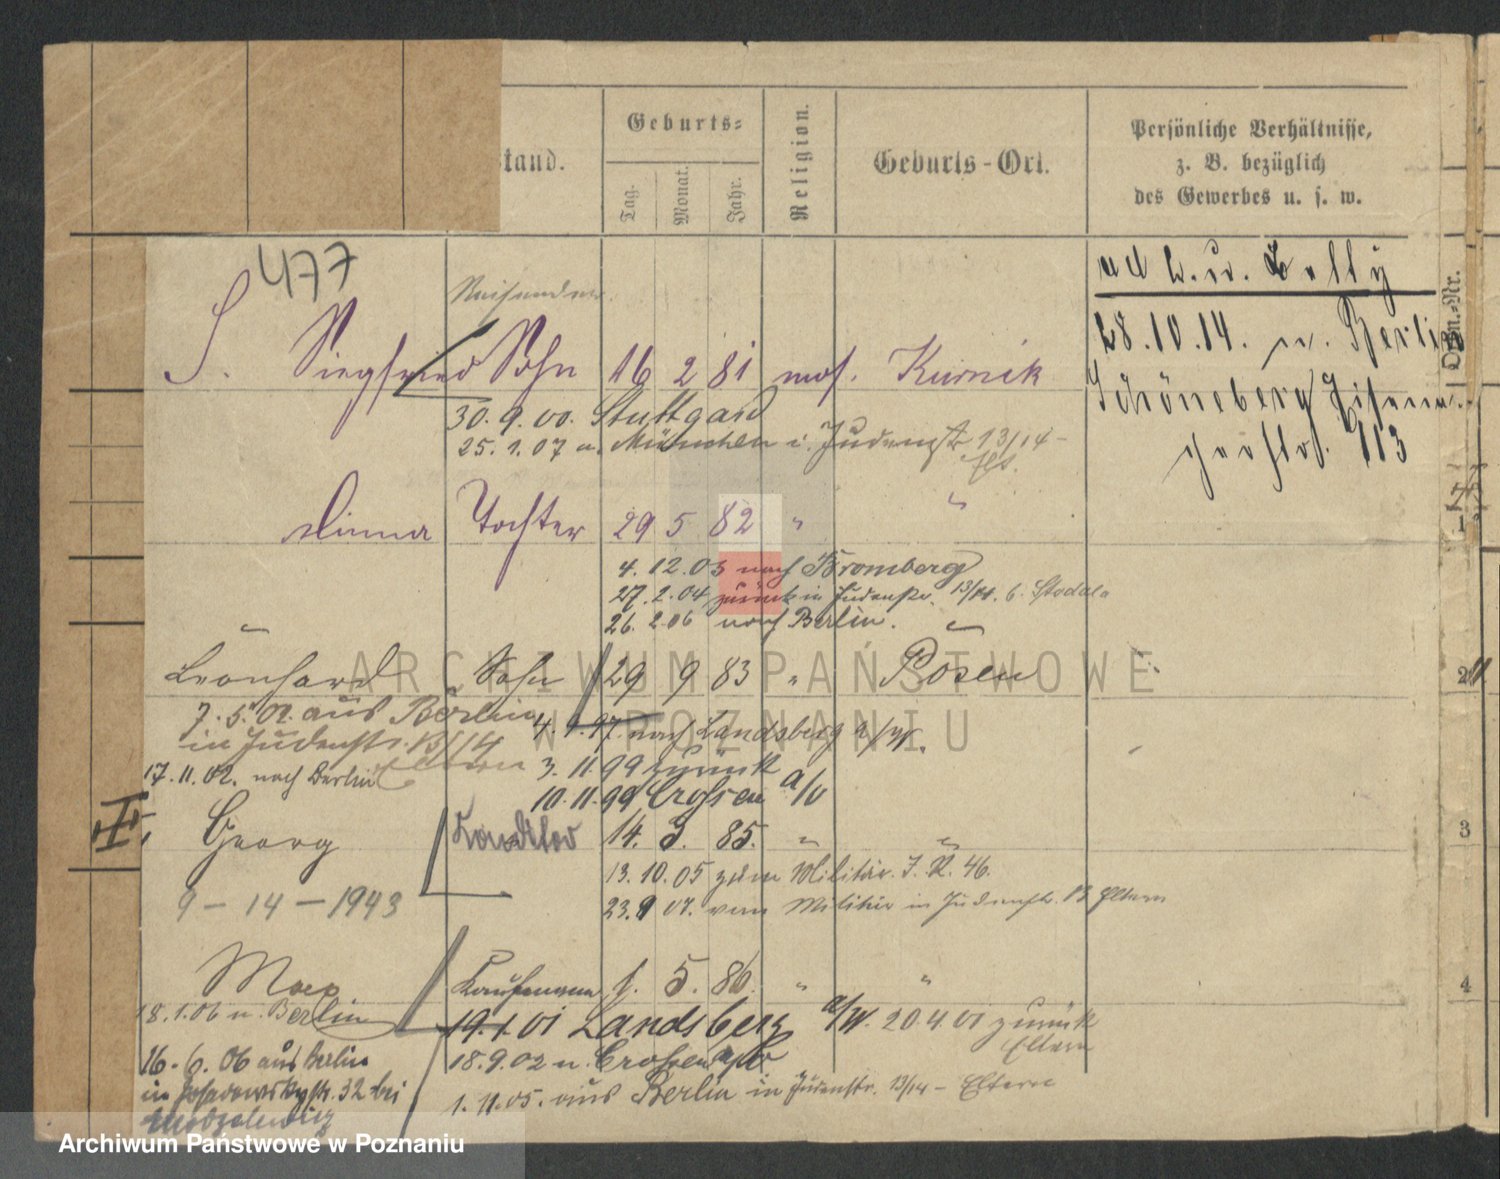 stand.
Geburts-
Tag. Monat. Jahr.
Religion.
Geburts-Ort.
Persönliche Verhältnisse,
z. B. bezüglich
des Gewerbes u. s. w.
477
Reisender.
S. Siegfried Sohn 16 2 81 mos. Kurnik
28.10.14. n. Berlin
Schöneberg
113
30.9.00. Stuttgard
25.1.07 n. München i. Judenstr 13/14
Tochter 29 5 82 "
4.12.03 nach Bromberg
27.2.04 zurück in Judenstr. 13/14. b. Stodala
26.2.06 nach Berlin.
Leonhard Sohn 29 9 83 " Posen
7.5.01. aus Berlin
in Judenstr. 13/14
Eltern
17.11.02. nach Berlin
4.1.97. nach Landsberg a/W.
3.11.99 zurück
10.11.99 Crossen a/O
Georg Conditor 14. 3. 85. "
13.10.05 zum Militär. I.R. 46.
9-14-1943
23.9.07. vom Militär in Judenstr. 13 Eltern
Max Kaufmann 1. 5. 86. " "
18.1.06 n. Berlin
19.1.01 Landsberg a/W. 20.4.01 zurück
Eltern
16.6.06 aus Berlin
18.9.02 n. Crossen a/O
32 bei
1.11.05. aus Berlin in Judenstr. 13/14 - Eltern
Ordn.-Nr.
1
2
3
4
ARCHIWUM PAŃSTWOWE
W POZNANIU
Archiwum Państwowe w Poznaniu